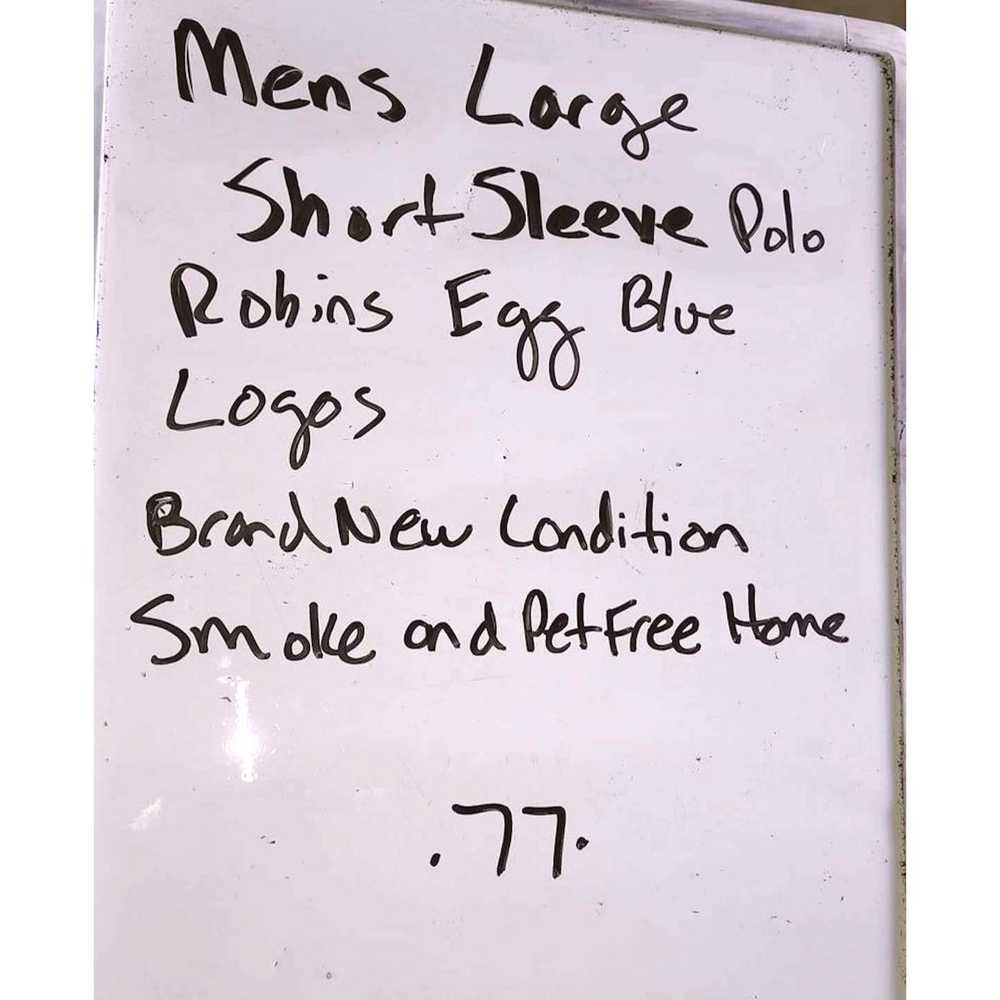 Mens Large
Short Sleeve Polo
Robins Egg Blue
Logos
Brand New Condition
Smoke and Pet Free Home
.77.